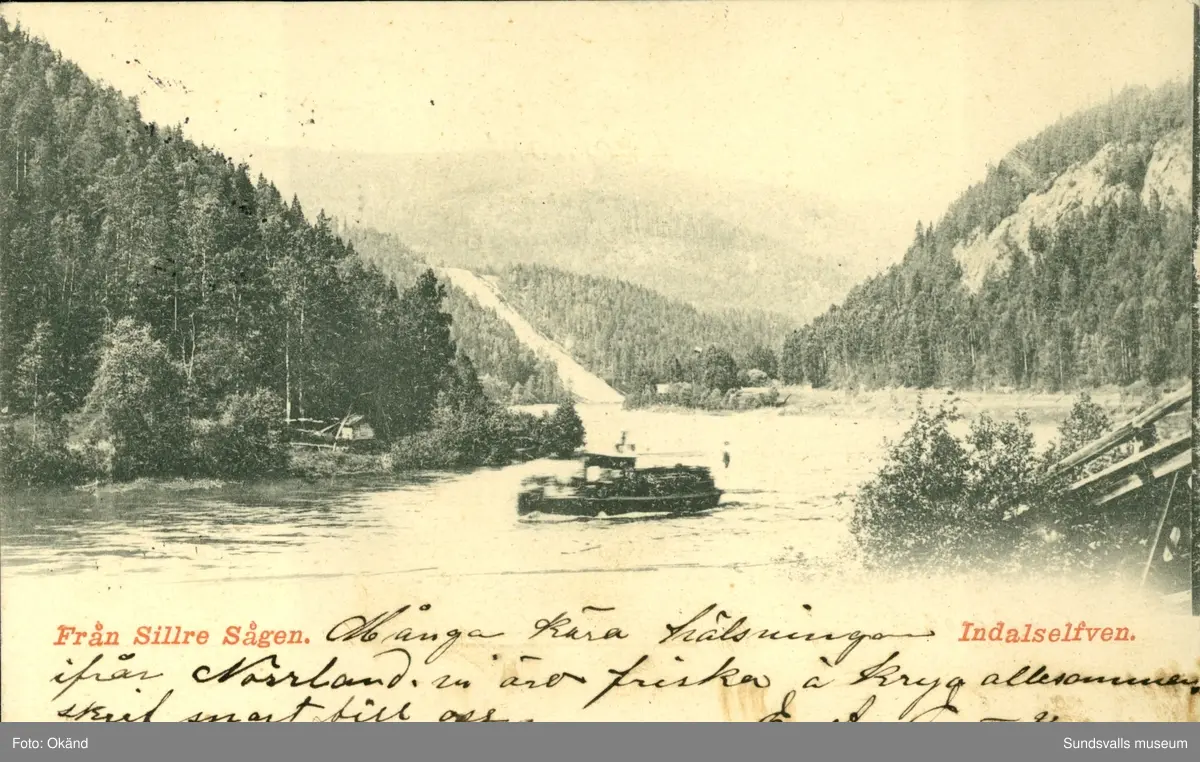 Från Sillre Sågen. Många kära hälsningar Indalselfven.
ifrån Norrland. vi äro friska å kryga allesammen
skrif snart till oss
Foto: Okänd
Sundsvalls museum